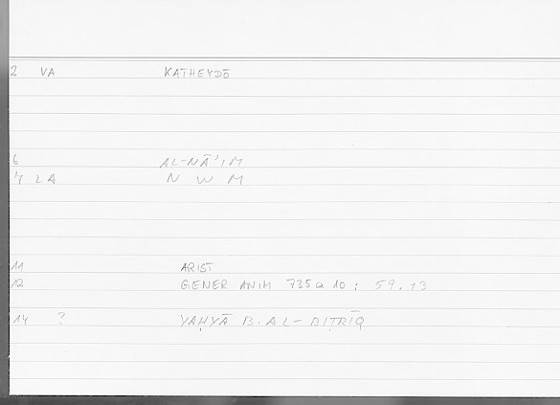 2 VA KATHEYDŌ
6 AL-NĀ'IM
7 LA N W M
11 ARIST
12 GENER ANIM 735a 10: 59.13
14 ? YAḤYĀ B. AL-BIṬRĪQ